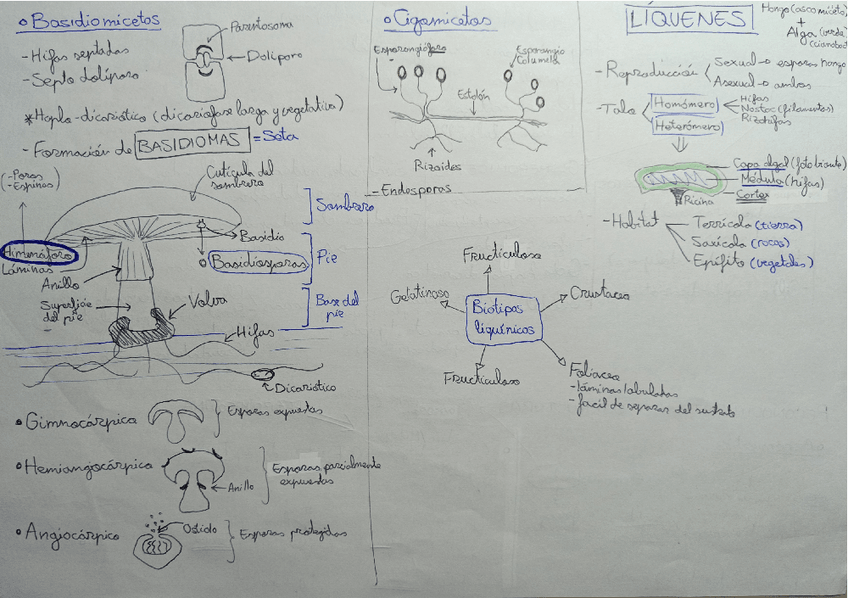 Basidiomicetos
- Hifas septadas
- Septo doliporo
Parentosoma
Doliporo
*Haplo-dicariótico (dicariofase larga y vegetativa)
- Formación de BASIDIOMAS = Seta
(- Poros
- Espinas)
Cutícula del
sombrero
Himenóforo
Láminas
Anillo
Superficie
del pie
Volva
Basidio
Basidiosporas
Sombrero
Pie
Base del
pie
Hifas
Dicariótico
Gimnocárpica
Esporas expuestas
Hemiangocárpica
Anillo
Esporas parcialmente
expuestas
Angiocárpica
Ostiolo
Esporas protegidas
Cigomicetos
Esporangióforo
Esporangio
Columela
Estolón
Rizoides
- Endosporas
LÍQUENES
Hongo (ascomiceto)
+
Alga (verde)
- Reproducción
Sexual → esporas hongo
Asexual → ambos
- Talo
Homómero
Hifas
Nostoc (filamentos)
Rizohifas
Heterómero
Capa algal (fotobionte)
Médula (hifas)
Cortex
Ricina
- Habitat
Terrícola (tierra)
Saxícola (rocas)
Epífito (vegetales)
Biotipos
liquénicos
Fructiculoso
Gelatinoso
Crustaceo
Fructiculoso
Foliaceo
- láminas/lobuladas
- facil de separar del sustrato